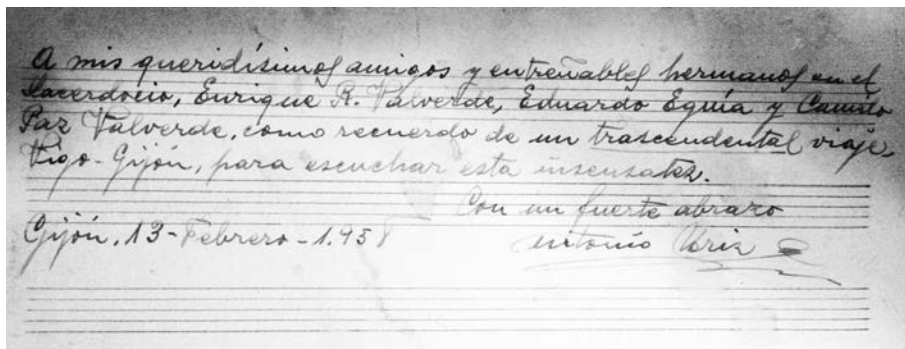 A mis queridísimos amigos y entrañables hermanos en el
Sacerdocio, Enrique R. Valverde, Eduardo Eguía y Camilo
Paz Valverde, como recuerdo de un trascendental viaje,
Vigo-Gijón, para escuchar esta insensatez.
Con un fuerte abrazo
Gijón, 13-Febrero-1.958 Antonio